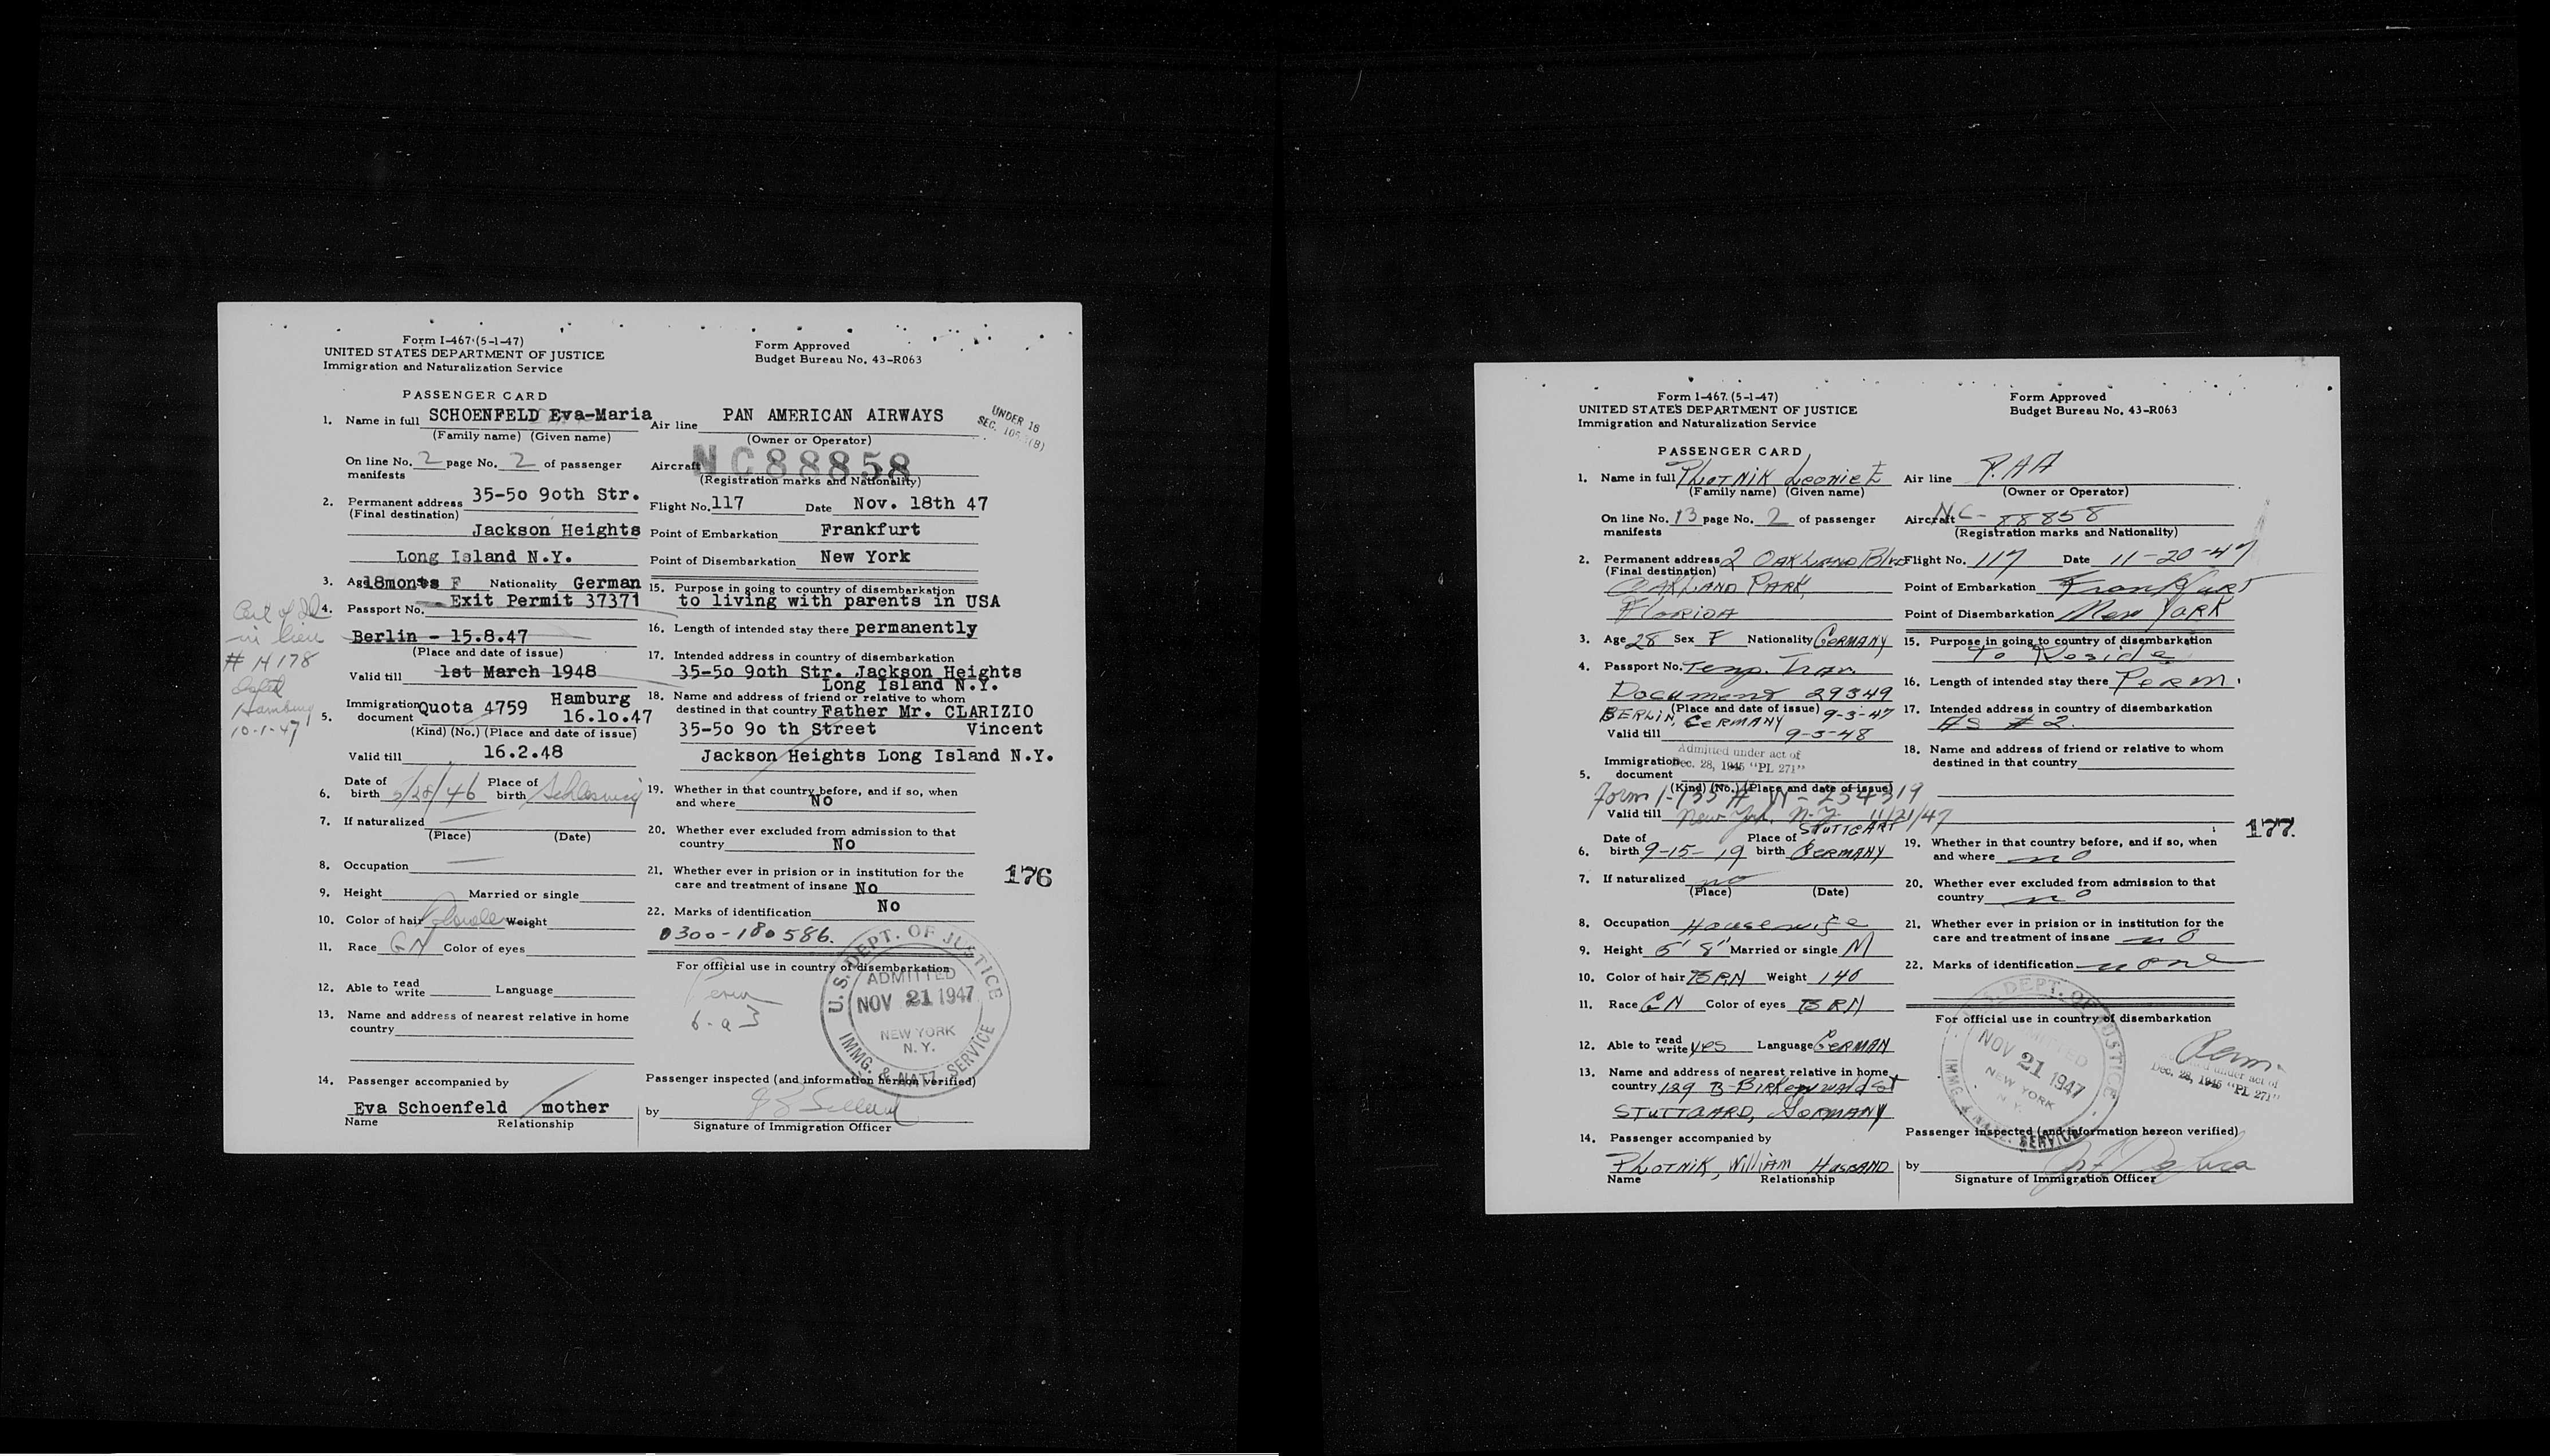 Form I-467 (5-1-47)
UNITED STATES DEPARTMENT OF JUSTICE
Immigration and Naturalization Service
Form Approved
Budget Bureau No. 43-R063
PASSENGER CARD
1. Name in full SCHOENFELD Eva-Maria
(Family name) (Given name)
On line No. 2 page No. 2 of passenger
manifests
2. Permanent address 35-50 90th Str.
(Final destination)
Jackson Heights
Long Island N.Y.
3. Age 18monts F Nationality German
4. Passport No. Exit Permit 37371
Berlin - 15.8.47
(Place and date of issue)
Valid till 1st March 1948
in lieu
# H178
dated
Hamburg
10-1-47
5. Immigration document Quota 4759 Hamburg
16.10.47
(Kind) (No.) (Place and date of issue)
Valid till 16.2.48
6. Date of birth /28/46 Place of birth Schleswig
7. If naturalized
(Place) (Date)
8. Occupation
9. Height Married or single
10. Color of hair Weight
11. Race GN Color of eyes
12. Able to read write Language
13. Name and address of nearest relative in home
country
14. Passenger accompanied by
Eva Schoenfeld / mother
Name Relationship
Air line PAN AMERICAN AIRWAYS
(Owner or Operator)
UNDER 16
SEC. (B)
Aircraft NC88858
(Registration marks and Nationality)
Flight No. 117 Date Nov. 18th 47
Point of Embarkation Frankfurt
Point of Disembarkation New York
15. Purpose in going to country of disembarkation
to living with parents in USA
16. Length of intended stay there permanently
17. Intended address in country of disembarkation
35-50 90th Str. Jackson Heights
Long Island N.Y.
18. Name and address of friend or relative to whom
destined in that country Father Mr. CLARIZIO
35-50 90 th Street Vincent
Jackson Heights Long Island N.Y.
19. Whether in that country before, and if so, when
and where No
20. Whether ever excluded from admission to that
country No
21. Whether ever in prision or in institution for the
care and treatment of insane No
176
22. Marks of identification No
0300-180586.
For official use in country of disembarkation
Perm
U.S. DEPT. OF JUSTICE
ADMITTED
NOV 21 1947
NEW YORK
N.Y.
IMMG. & NATZ. SERVICE
Passenger inspected (and information hereon verified)
by
Signature of Immigration Officer
Form I-467 (5-1-47)
UNITED STATES DEPARTMENT OF JUSTICE
Immigration and Naturalization Service
Form Approved
Budget Bureau No. 43-R063
PASSENGER CARD
1. Name in full PLOTNIK Leonie E
(Family name) (Given name)
On line No. 13 page No. 2 of passenger
manifests
2. Permanent address 2 OAKLAND Blvd
(Final destination)
OAKLAND PARK,
FLORIDA
3. Age 28 Sex F Nationality GERMANY
4. Passport No. Temp. Trav.
Document 29349
(Place and date of issue)
BERLIN, GERMANY 9-3-47
Valid till 9-3-48
Admitted under act of
Dec. 28, 1945 "PL 271"
5. Immigration document
(Kind) (No.) (Place and date of issue)
Form I-133 # W-254319
Valid till New York, N.Y. 11/21/47
6. Date of birth 9-15-19 Place of birth STUTTGART GERMANY
7. If naturalized no
(Place) (Date)
8. Occupation Housewife
9. Height 5' 8" Married or single M
10. Color of hair BRN Weight 140
11. Race GN Color of eyes BRN
12. Able to read write yes Language GERMAN
13. Name and address of nearest relative in home
country 129 B-Birkenwald St
STUTTGARD, GORMANY
14. Passenger accompanied by
PLOTNIK, William HUSBAND
Name Relationship
Air line P.A.A
(Owner or Operator)
Aircraft NC-88858
(Registration marks and Nationality)
Flight No. 117 Date 11-20-47
Point of Embarkation Frankfurt
Point of Disembarkation New YORK
15. Purpose in going to country of disembarkation
To Reside
16. Length of intended stay there PERM.
17. Intended address in country of disembarkation
AS # 2.
18. Name and address of friend or relative to whom
destined in that country
177
19. Whether in that country before, and if so, when
and where no
20. Whether ever excluded from admission to that
country no
21. Whether ever in prision or in institution for the
care and treatment of insane no
22. Marks of identification none
For official use in country of disembarkation
DEPT. OF JUSTICE
ADMITTED
NOV 21 1947
NEW YORK
N.Y.
IMMG. & NATZ. SERVICE
Perm.
Admitted under act of
Dec. 28, 1945 "PL 271"
Passenger inspected (and information hereon verified)
by
Signature of Immigration Officer